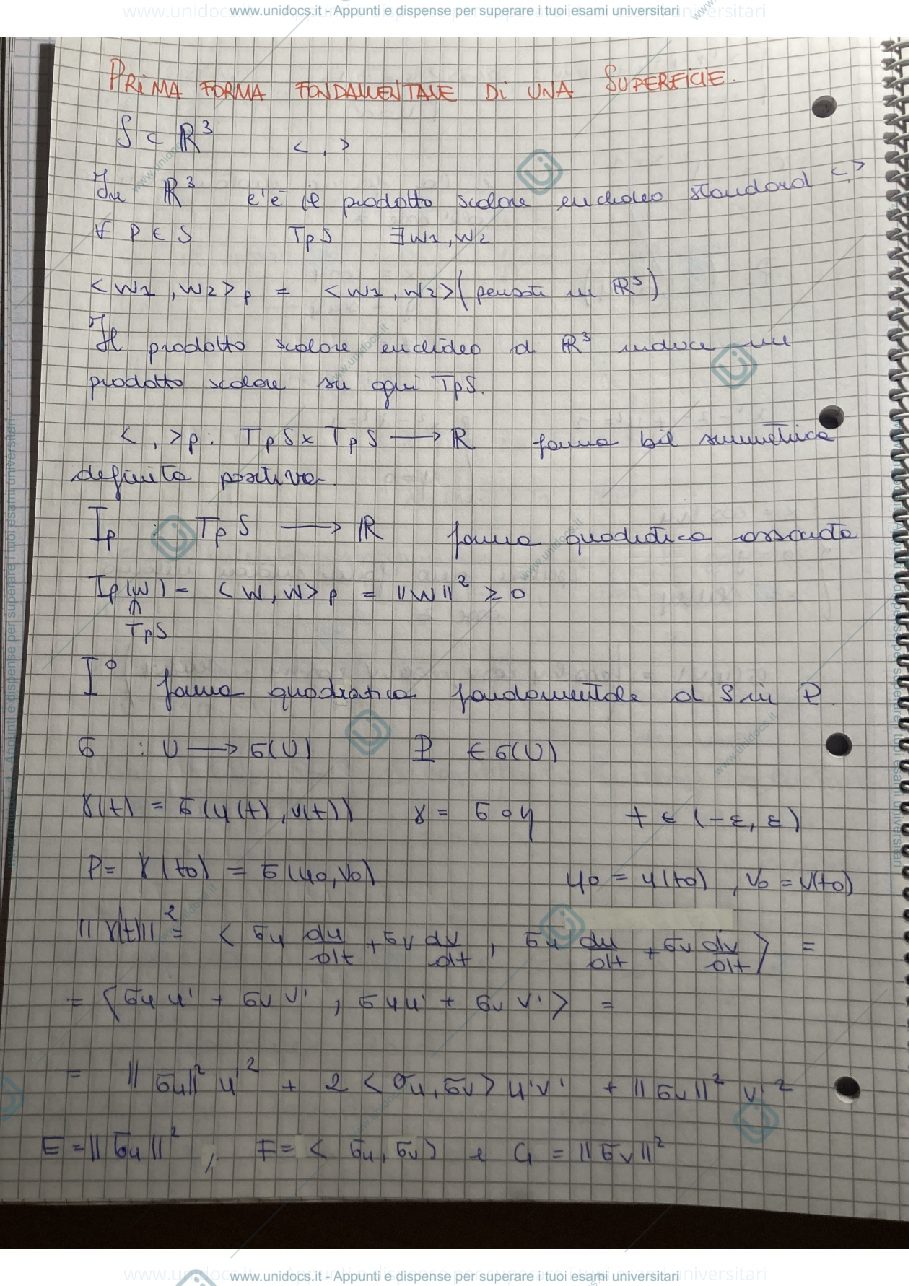 www.unidocs.it - Appunti e dispense per superare i tuoi esami universitari
PRIMA FORMA FONDAMENTALE DI UNA SUPERFICIE.
S ⊂ ℝ³ < , >
In ℝ³ c'è il prodotto scalare euclideo standard < , >
∀ P ∈ S TpS ∃ w₁, w₂
<w₁, w₂>p = <w₁, w₂> (pensati in ℝ³)
Il prodotto scalare euclideo di ℝ³ induce un
prodotto scalare su ogni TpS.
< , >p . TpS x TpS ⟶ ℝ forma bil simmetrica
definita positiva.
Ip : TpS ⟶ ℝ forma quadratica associata
Ip(w) = <w, w>p = ||w||² ≥ 0
∩
TpS
I° forma quadratica fondamentale di S in P.
σ : U ⟶ σ(U) P ∈ σ(U)
γ(t) = σ(u(t), v(t)) γ = σ ∘ η t ∈ (-ε, ε)
P = γ(t₀) = σ(u₀, v₀) u₀ = u(t₀), v₀ = v(t₀)
||γ'(t)||² = < σu du/dt + σv dv/dt , σu du/dt + σv dv/dt > =
= <σu u' + σv v' , σu u' + σv v'> =
= ||σu||² u'² + 2 <σu, σv> u'v' + ||σv||² v'²
E = ||σu||² ; F = <σu, σv> e G = ||σv||²
www.unidocs.it - Appunti e dispense per superare i tuoi esami universitari